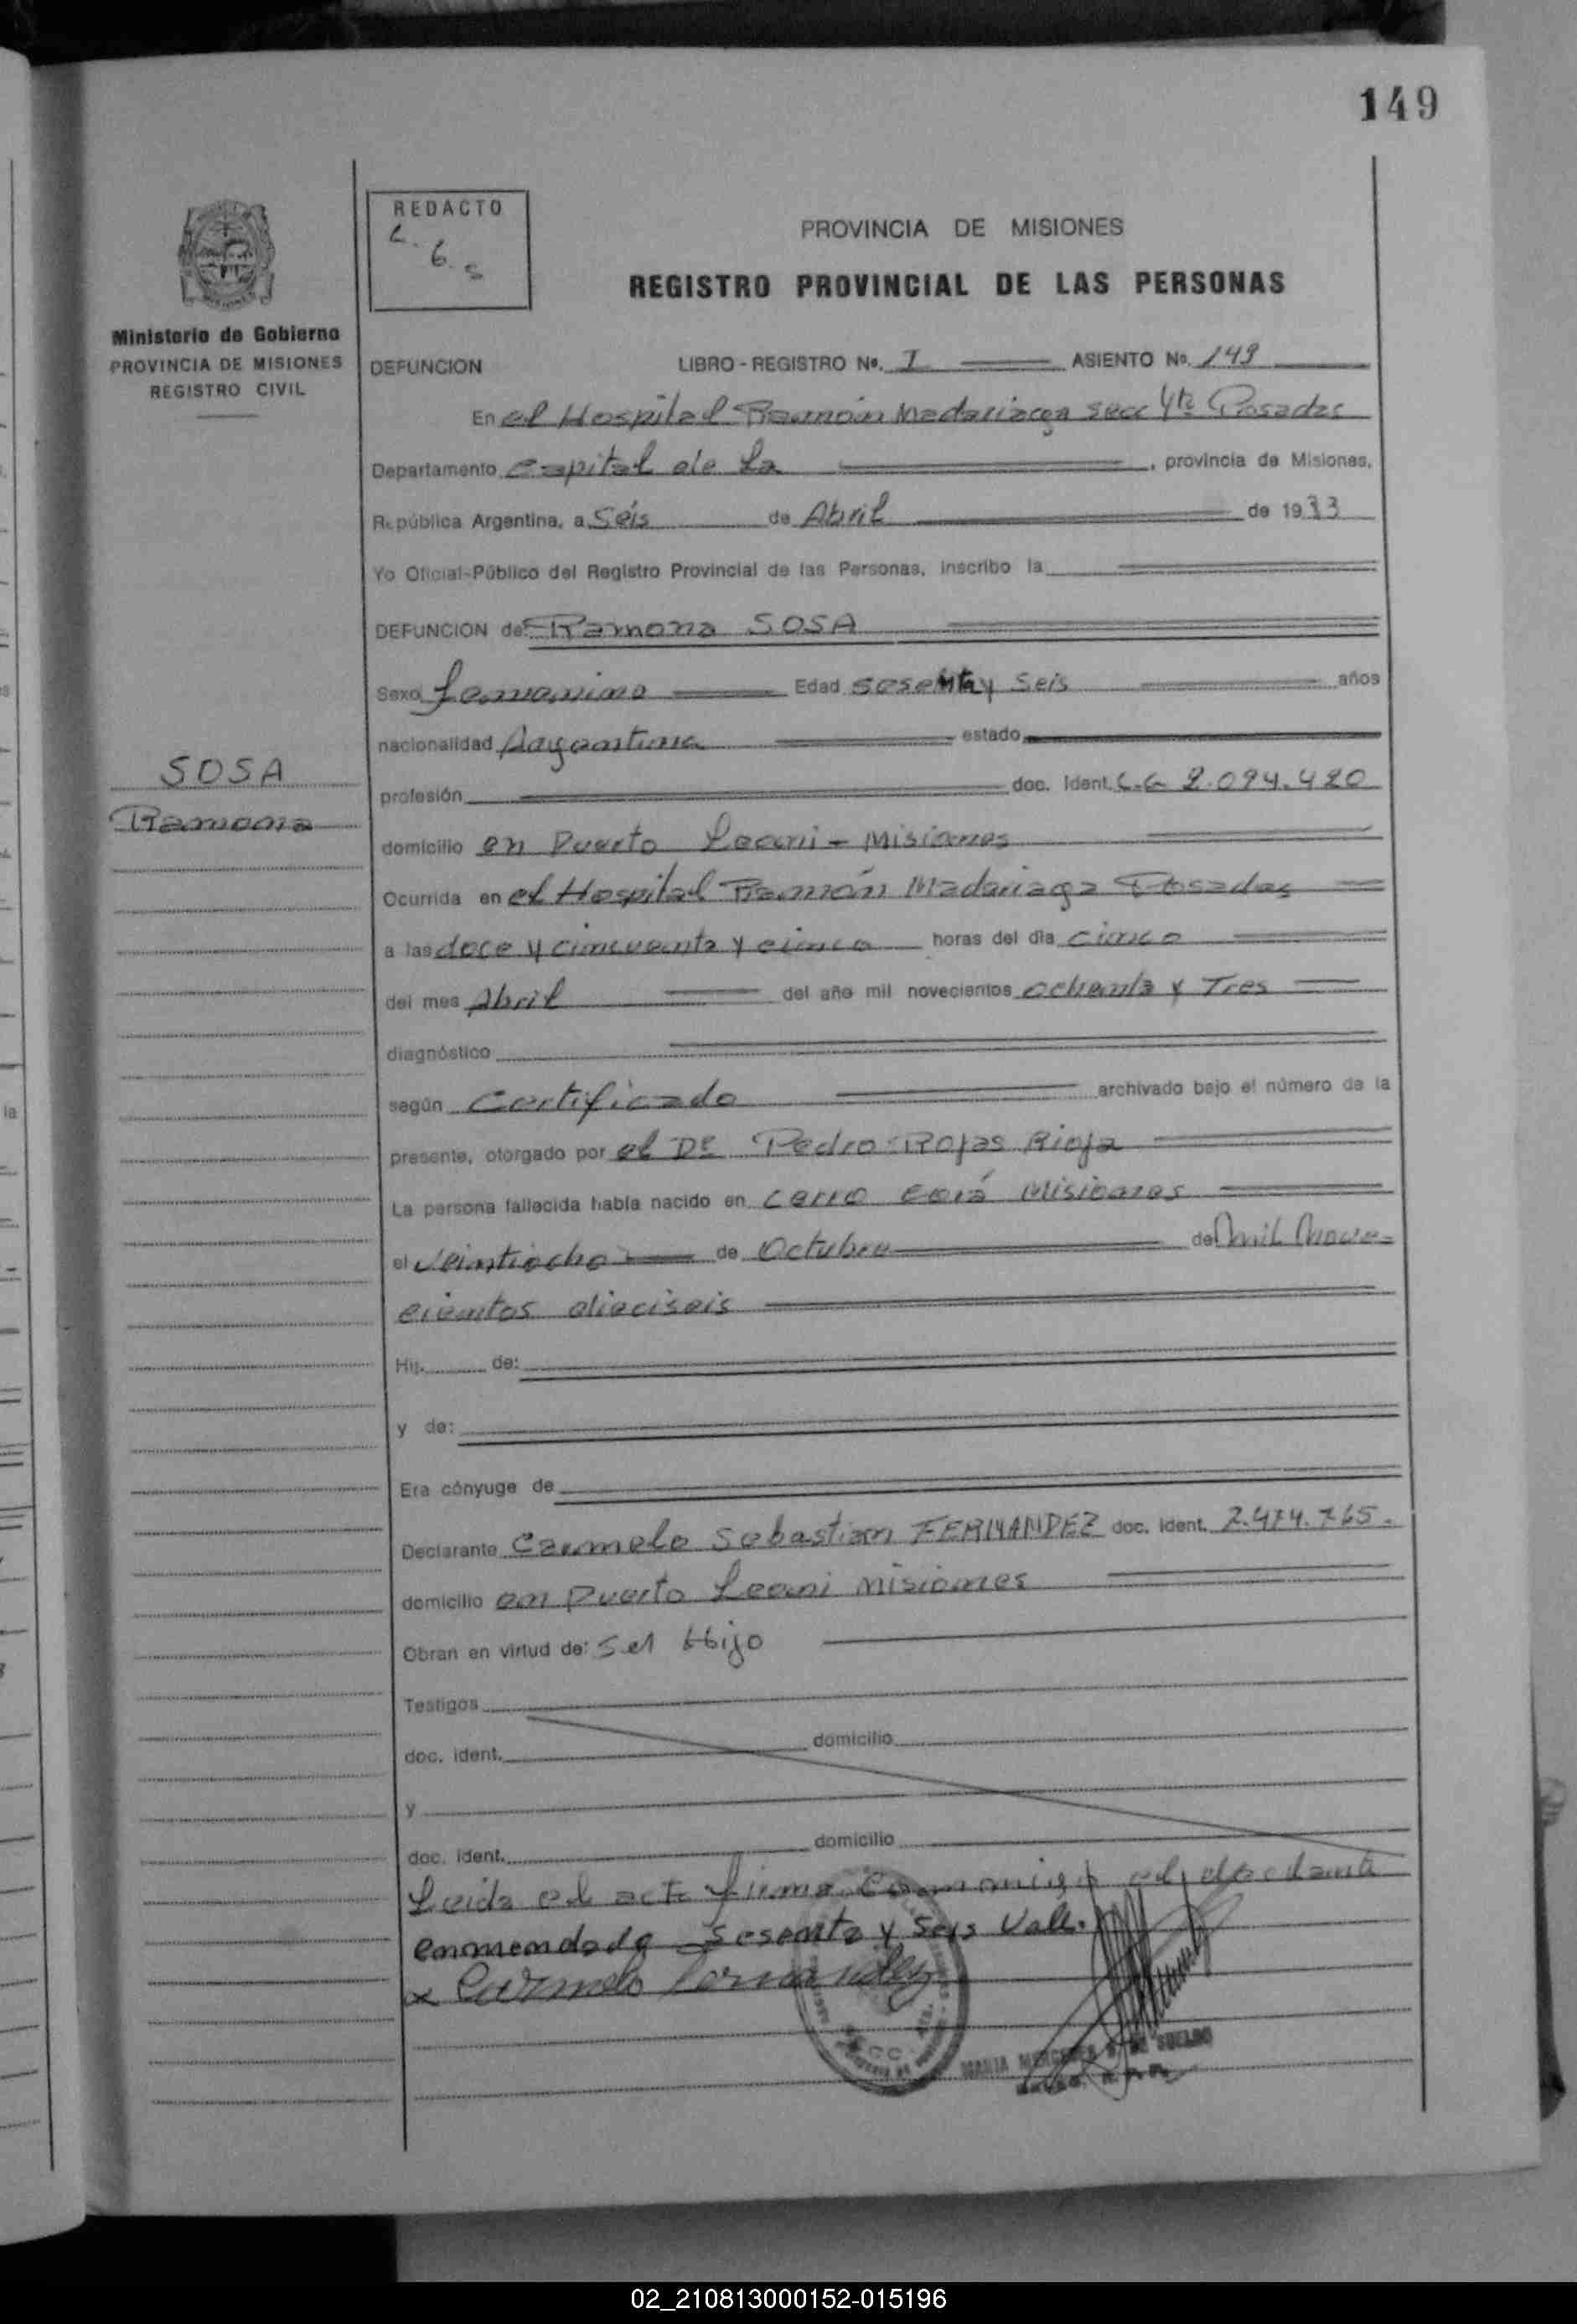 149
REDACTO
L. G. S
PROVINCIA DE MISIONES
REGISTRO PROVINCIAL DE LAS PERSONAS
Ministerio de Gobierno
PROVINCIA DE MISIONES
REGISTRO CIVIL
DEFUNCION LIBRO - REGISTRO Nº. I ASIENTO Nº. 149
En el Hospital Ramón Madariaga Secc 4ta Posadas
Departamento Capital de La , provincia de Misiones,
República Argentina, a Séis de Abril de 1983
Yo Oficial-Público del Registro Provincial de las Personas, inscribo la
DEFUNCION de: Ramona SOSA
Sexo femenino Edad sesenta y seis años
nacionalidad Argentina estado
SOSA
Ramona
profesión doc. Ident. L.C 2.094.420
domicilio en Puerto Leoni - Misiones
Ocurrida en el Hospital Ramón Madariaga Posadas
a las doce y cincuenta y cinco horas del día cinco
del mes Abril del año mil novecientos ochenta y Tres
diagnóstico
según Certificado archivado bajo el número de la
presente, otorgado por el Dr Pedro Rojas Rioja
La persona fallecida había nacido en Cerro Corá Misiones
el Veintiocho de Octubre de Mil Nove-
cientos dieciseis
Hij. de:
y de:
Era cónyuge de
Declarante Carmelo Sebastian FERNANDEZ doc. Ident. 7.474.765.
domicilio en Puerto Leoni Misiones
Obran en virtud de: Ser Hijo
Testigos
doc. ident. domicilio
y
doc. ident. domicilio
Leida el acta firma conmigo el declarante
enmendado Sesenta y Seis Vale.
x Carmelo Fernandez
MARIA MERCEDES DE SUELDO
02_210813000152-015196